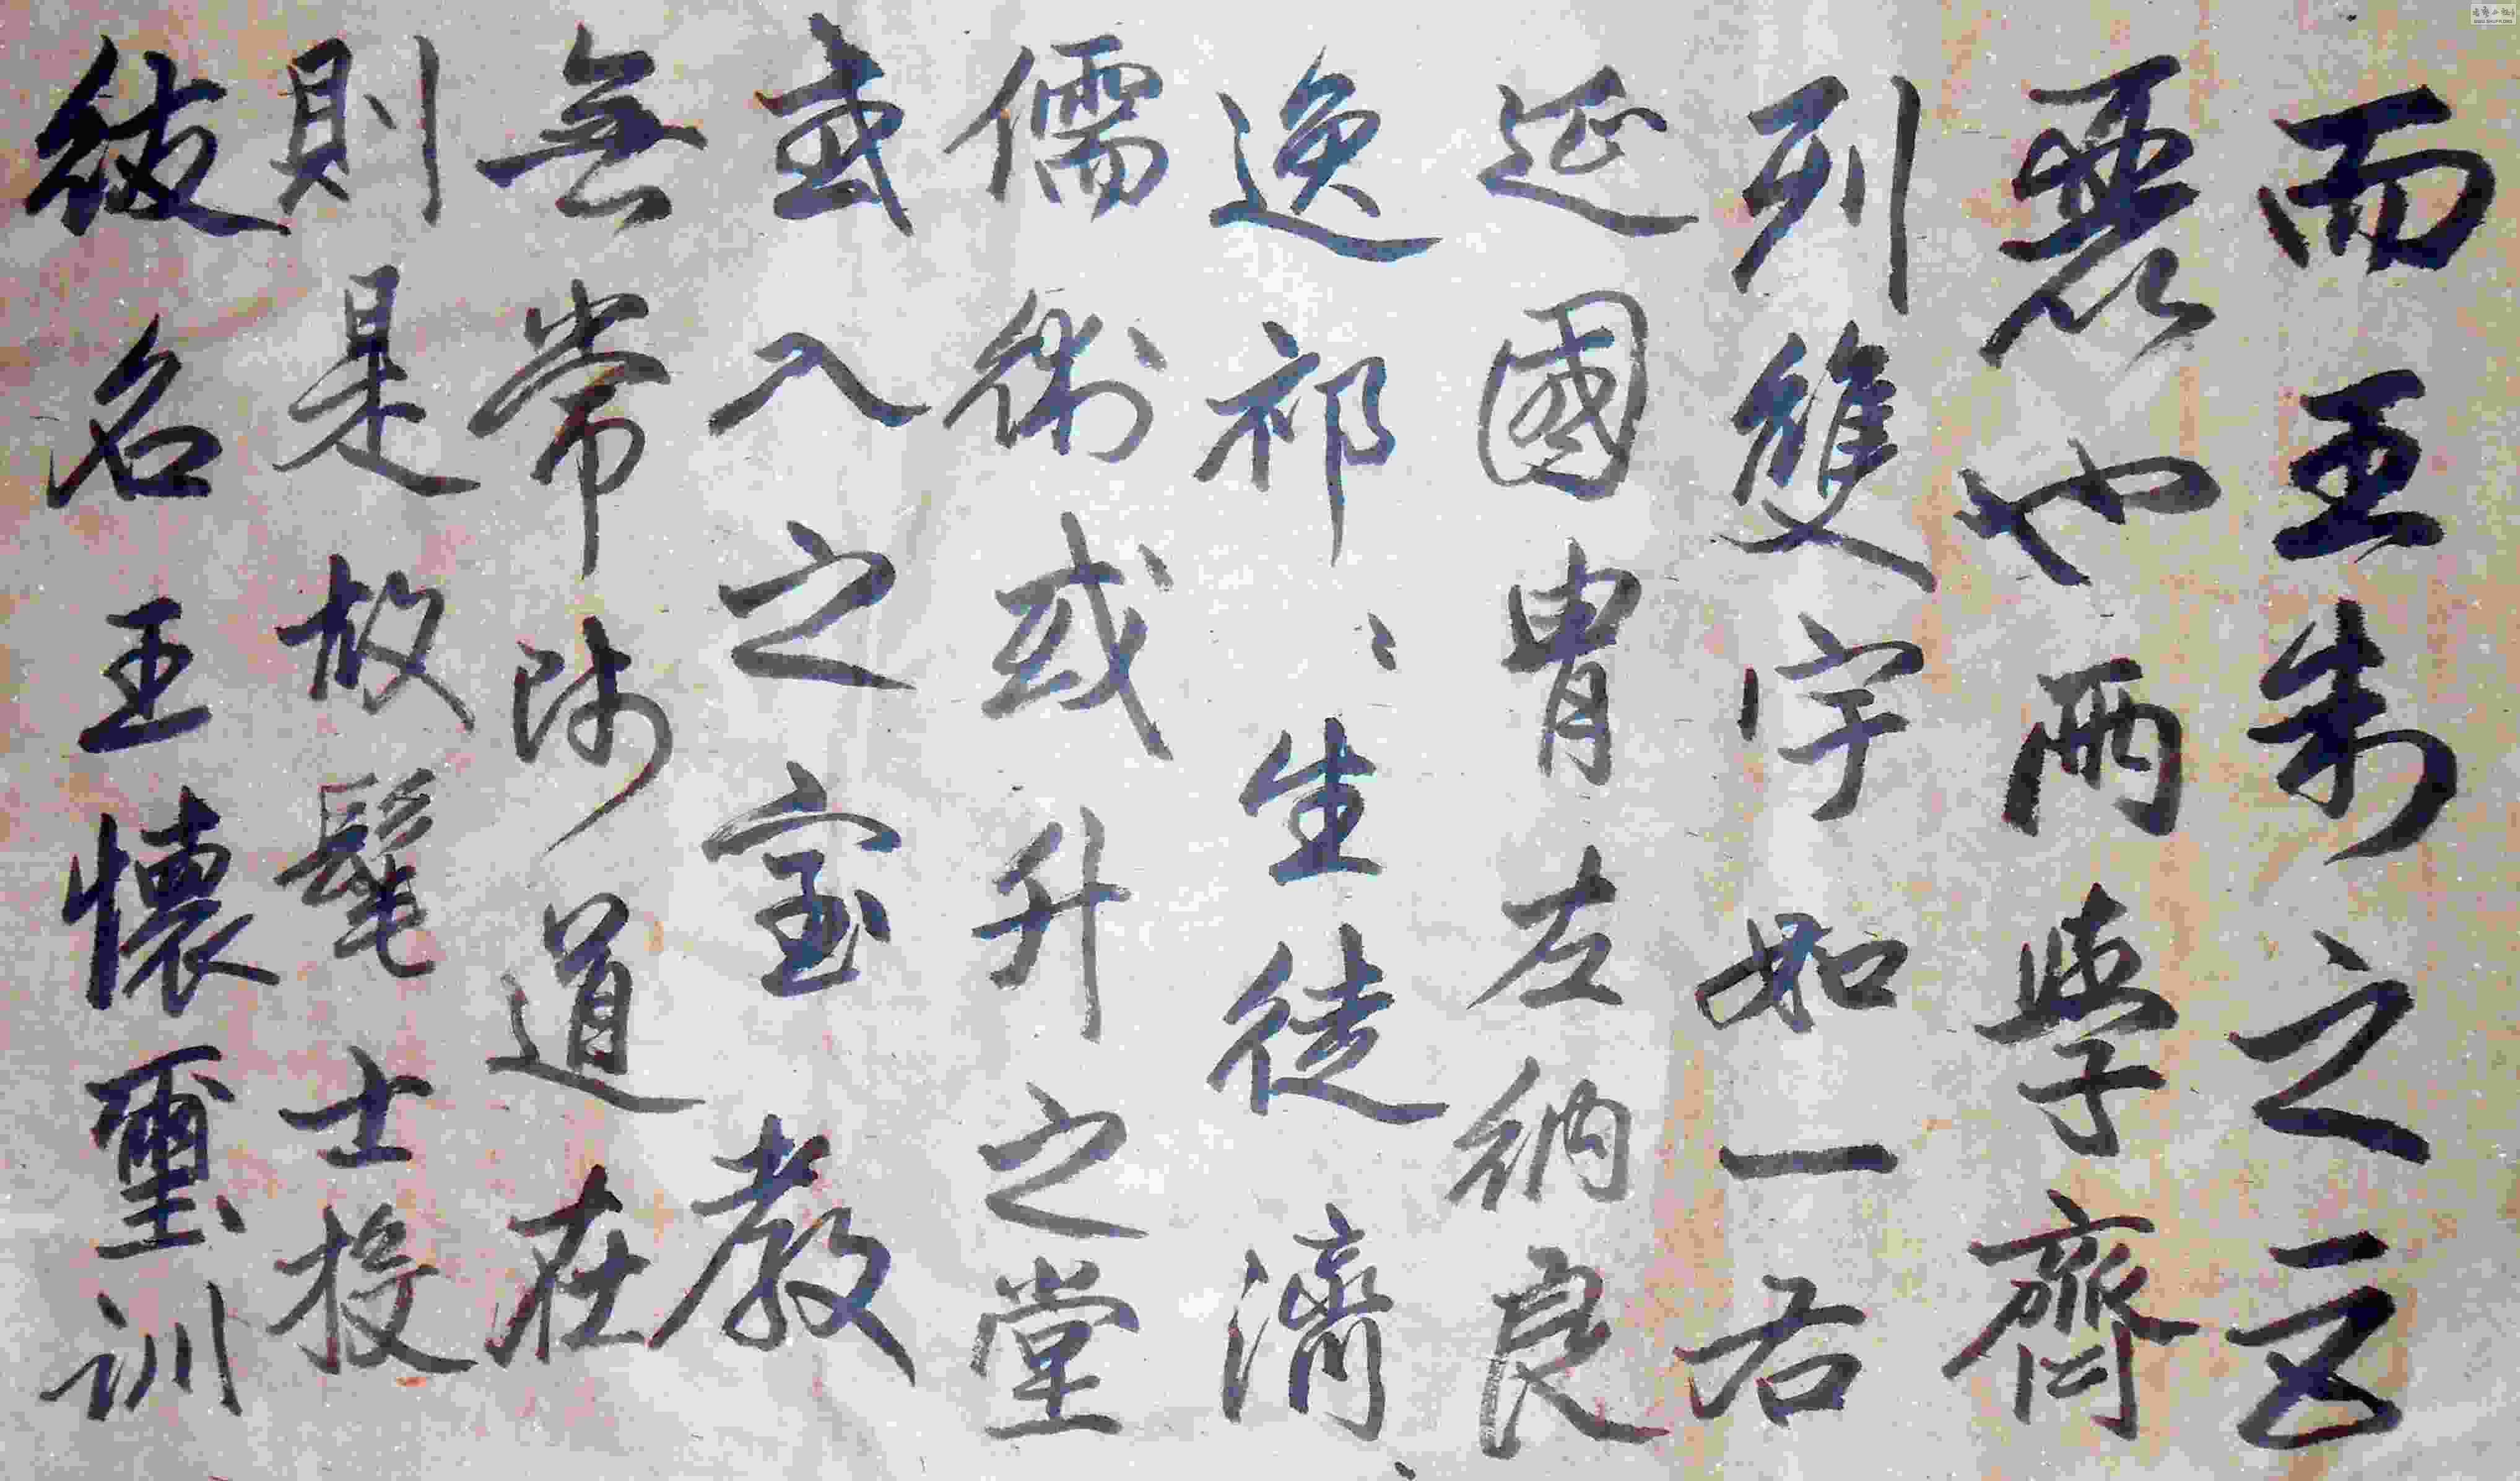 而王制之巨
麗也兩學齊
列雙宇如一右
延國胄左納良
逸祁〻生徒濟〻
儒術或升之堂
或入之室教
無常師道在
則是故髦士投
紱名王懷璽訓